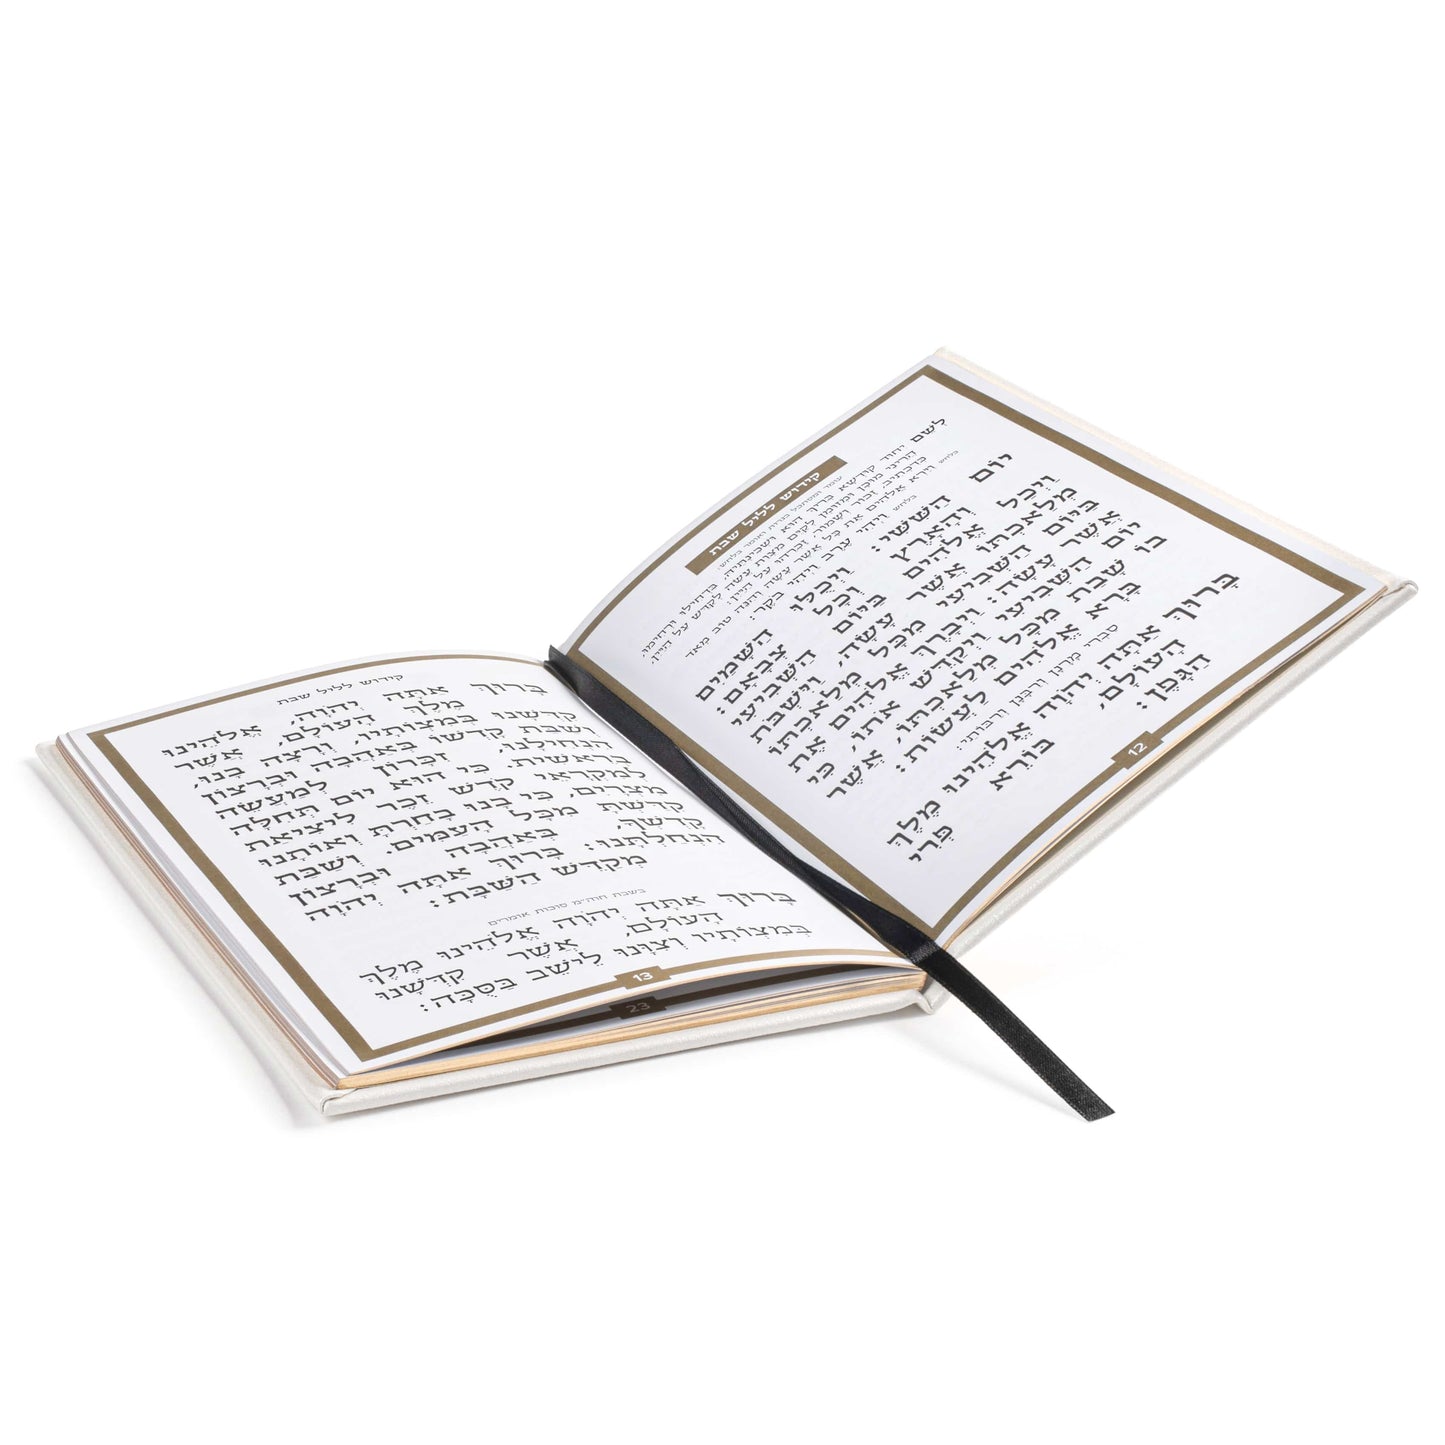 קידוש לליל שבת
עומד ומסתכל בנרות ואומר בלחש:
לְשֵׁם יחוד קידשא בריך הוא ושכינתיה, בדחילו ורחימו,
הריני מוכן ומזומן לקיים מצות עשה לקדש על היין,
כדכתיב, זכור ושמור. זכרהו על היין:
בלחש וַיַּרְא אֱלֹהִים אֶת כָּל אֲשֶׁר עָשָׂה וְהִנֵּה טוֹב מְאֹד
בלחש וַיְהִי עֶרֶב וַיְהִי בֹקֶר:
יוֹם הַשִּׁשִּׁי: וַיְכֻלּוּ הַשָּׁמַיִם
וְהָאָרֶץ וְכָל צְבָאָם:
וַיְכַל אֱלֹהִים בַּיּוֹם הַשְּׁבִיעִי
מְלַאכְתּוֹ אֲשֶׁר עָשָׂה, וַיִּשְׁבֹּת
בַּיּוֹם הַשְּׁבִיעִי מִכָּל מְלַאכְתּוֹ
אֲשֶׁר עָשָׂה: וַיְבָרֶךְ אֱלֹהִים אֶת
יוֹם הַשְּׁבִיעִי וַיְקַדֵּשׁ אֹתוֹ, כִּי
בוֹ שָׁבַת מִכָּל מְלַאכְתּוֹ, אֲשֶׁר
בָּרָא אֱלֹהִים לַעֲשׂוֹת:
סַבְרִי מָרָנָן וְרַבָּנָן וְרַבּוֹתַי:
בָּרוּךְ אַתָּה יְהֹוָה אֱלֹהֵינוּ מֶלֶךְ
הָעוֹלָם, בּוֹרֵא פְּרִי
הַגָּפֶן:
12
קידוש לליל שבת
בָּרוּךְ אַתָּה יְהֹוָה, אֱלֹהֵינוּ
מֶלֶךְ הָעוֹלָם, אֲשֶׁר
קִדְּשָׁנוּ בְּמִצְוֹתָיו, וְרָצָה בָנוּ,
וְשַׁבַּת קָדְשׁוֹ בְּאַהֲבָה וּבְרָצוֹן
הִנְחִילָנוּ, זִכָּרוֹן לְמַעֲשֵׂה
בְרֵאשִׁית. כִּי הוּא יוֹם תְּחִלָּה
לְמִקְרָאֵי קֹדֶשׁ זֵכֶר לִיצִיאַת
מִצְרַיִם, כִּי בָנוּ בָחַרְתָּ וְאוֹתָנוּ
קִדַּשְׁתָּ מִכָּל הָעַמִּים. וְשַׁבַּת
קָדְשְׁךָ, בְּאַהֲבָה וּבְרָצוֹן
הִנְחַלְתָּנוּ: בָּרוּךְ אַתָּה יְהֹוָה
מְקַדֵּשׁ הַשַּׁבָּת:
בשבת חוה״מ סוכות אומרים
בָּרוּךְ אַתָּה יְהֹוָה אֱלֹהֵינוּ מֶלֶךְ
הָעוֹלָם, אֲשֶׁר קִדְּשָׁנוּ
בְּמִצְוֹתָיו וְצִוָּנוּ לֵישֵׁב בַּסֻּכָּה:
13
23